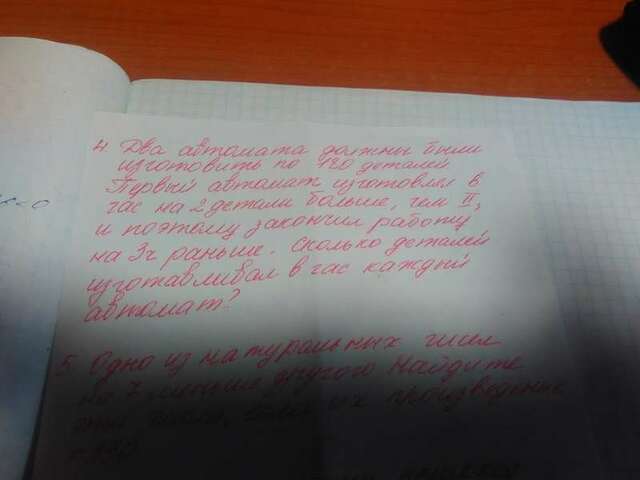 4. Два автомата должны были
изготовить по 120 деталей
Первый автомат изготовлял в
час на 2 детали больше, чем II,
и поэтому закончил работу
на 3ч раньше. Сколько деталей
изготавливал в час каждый
автомат?
5 Одно из натуральных чисел
на 7 меньше другого Найдите
эти числа, если их произведение